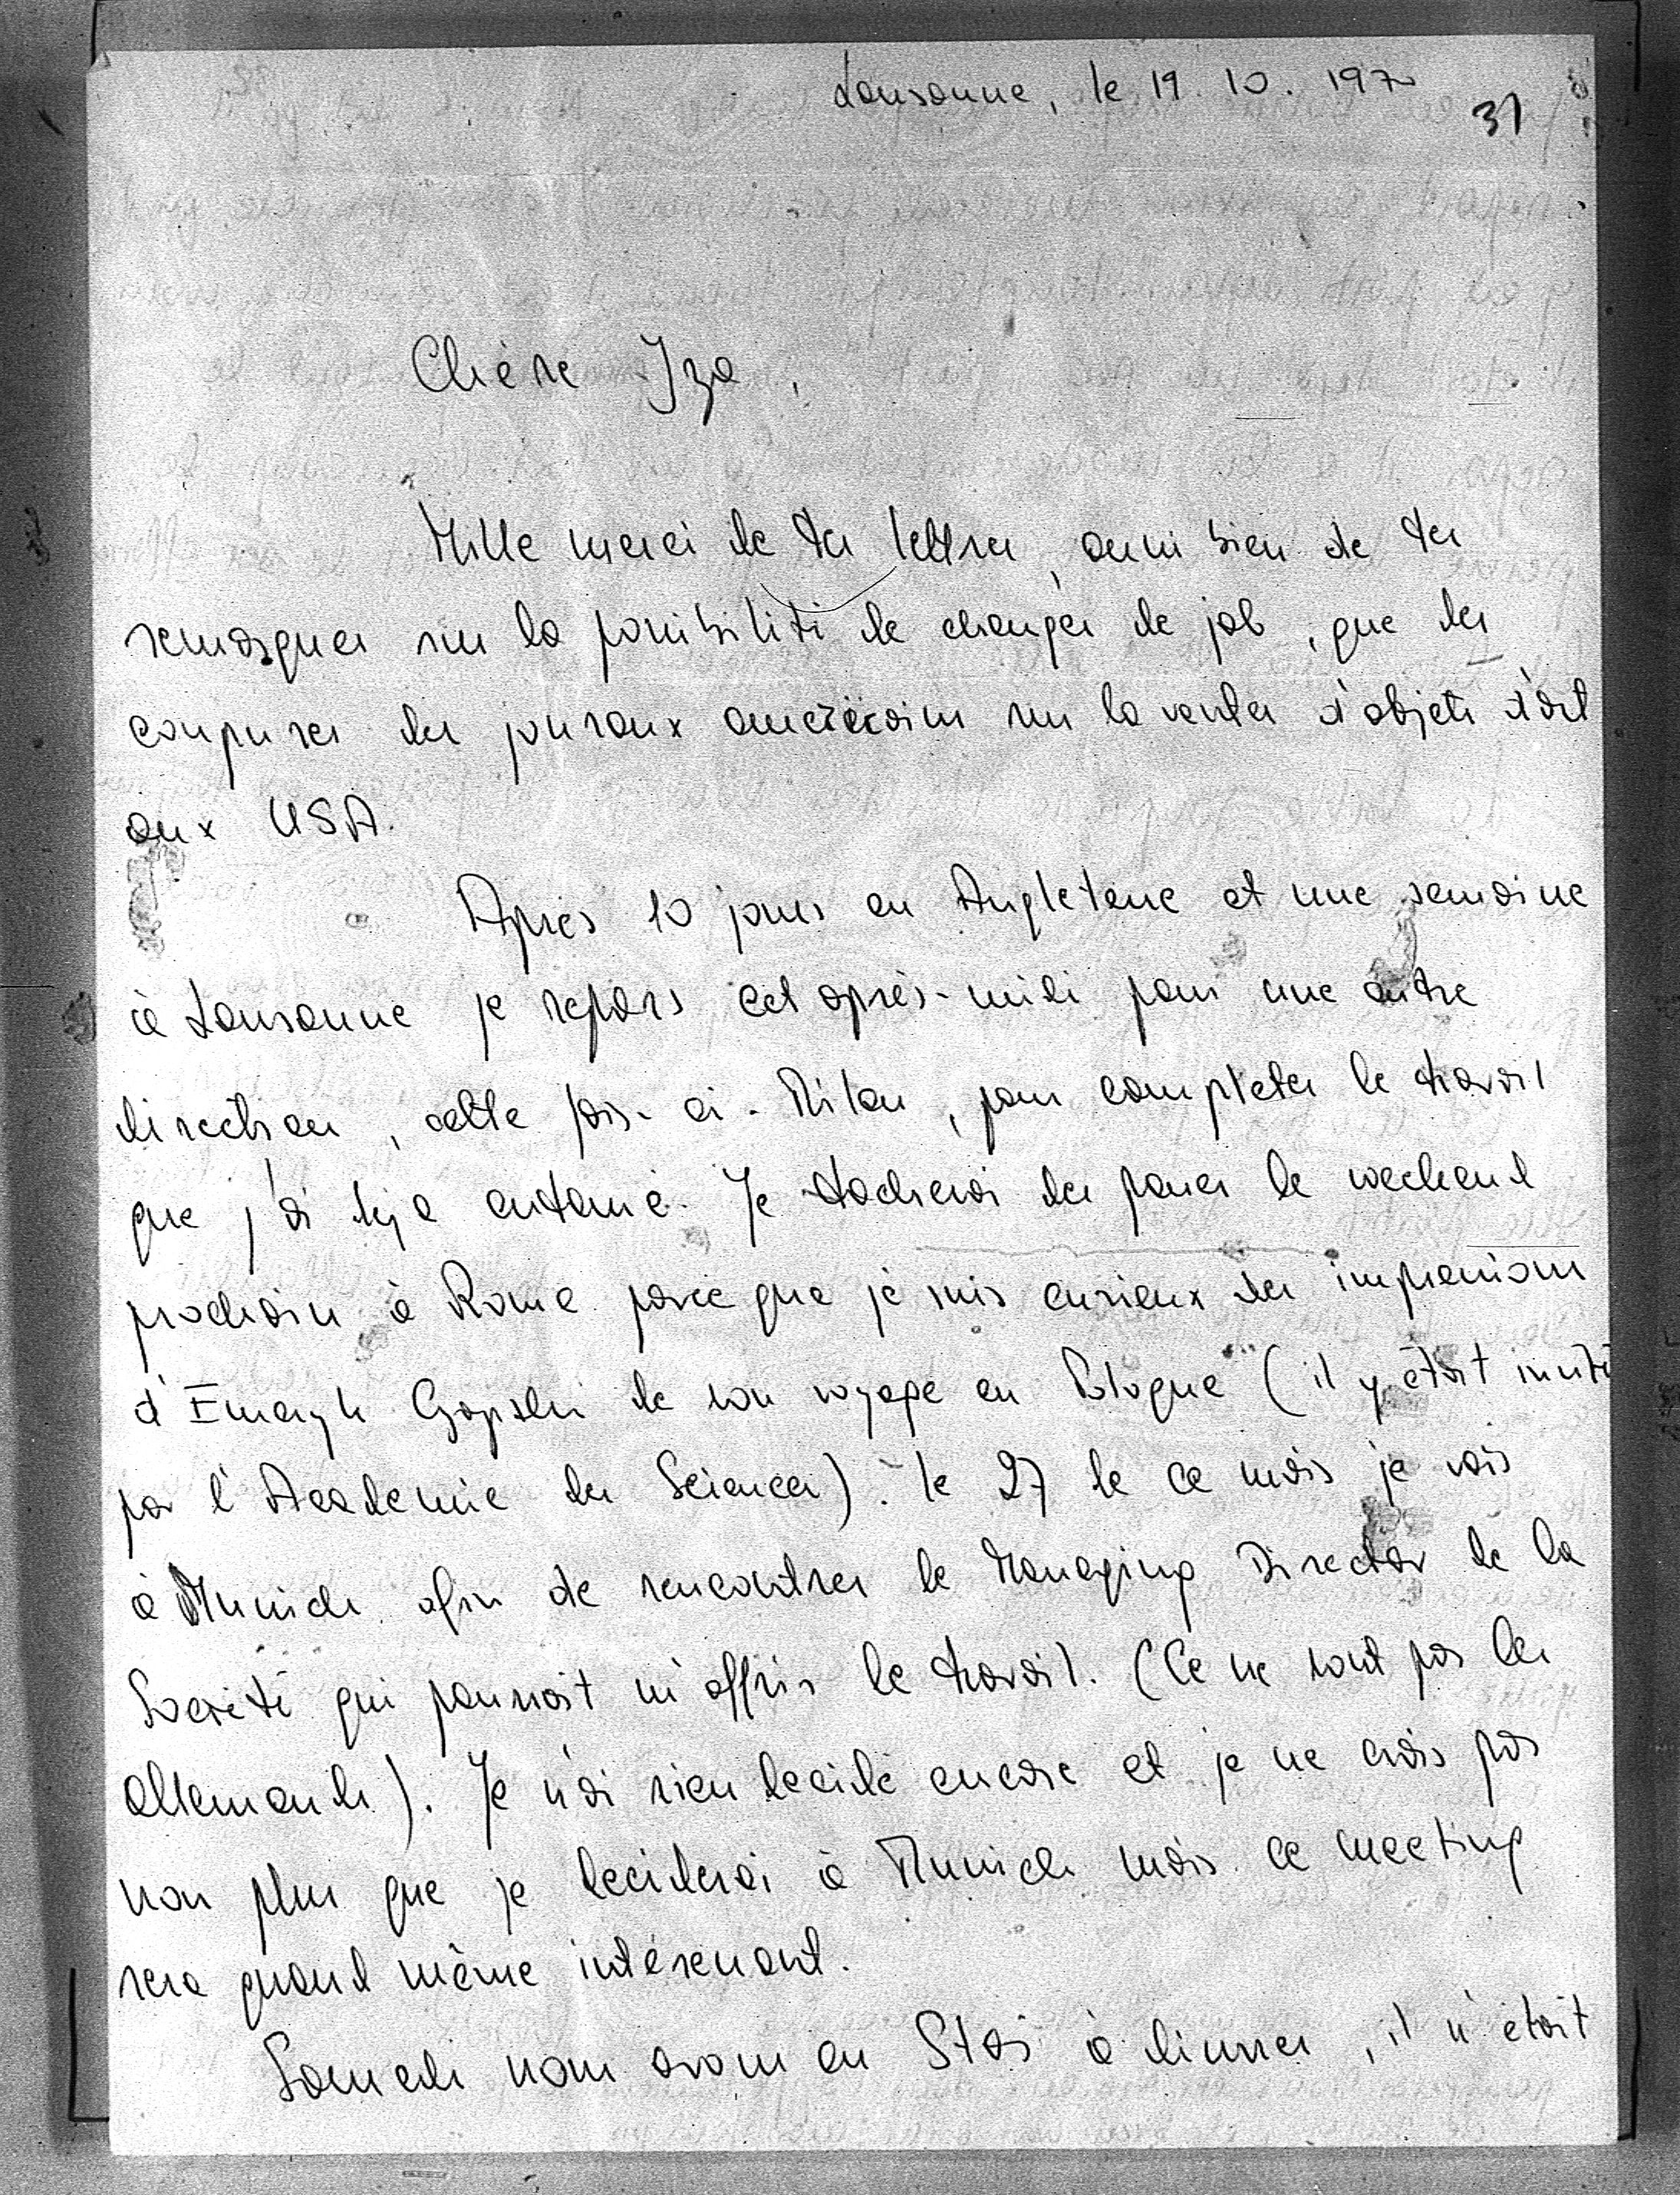 Lausanne, le 19. 10. 1970
31
Chère Iza,
Mille merci de tes lettres, aussi bien de tes
remarques sur la possibilité de changer de job, que des
coupures des jouraux americains sur la ventes d'objets d'art
aux USA.
Après 10 jours en Angleterre et une semaine
à Lausanne je repars cet après-midi pour une autre
direction, cette fois-ci - Milan, pour completer le travail
que j'ai deja entamé. Je tacherai des passer le weekend
prochain à Rome parce que je suis curieux des impressions
d'Emeryk de son voyage en Pologne (il y était invité
par l'Academie des Sciences). le 27 de ce mois je vais
à Munich afin de rencontrer le Managing Director de la
Societé qui pourrait m'offrir le travail. (Ce ne sont pas les
allemands). Je n'ai rien decidé encore et je ne crois pas
non plus que je deciderai à Munich mais ce meeting
sera quand même intéressant.
Samedi nous avons eu Staś à dinner, il n'était